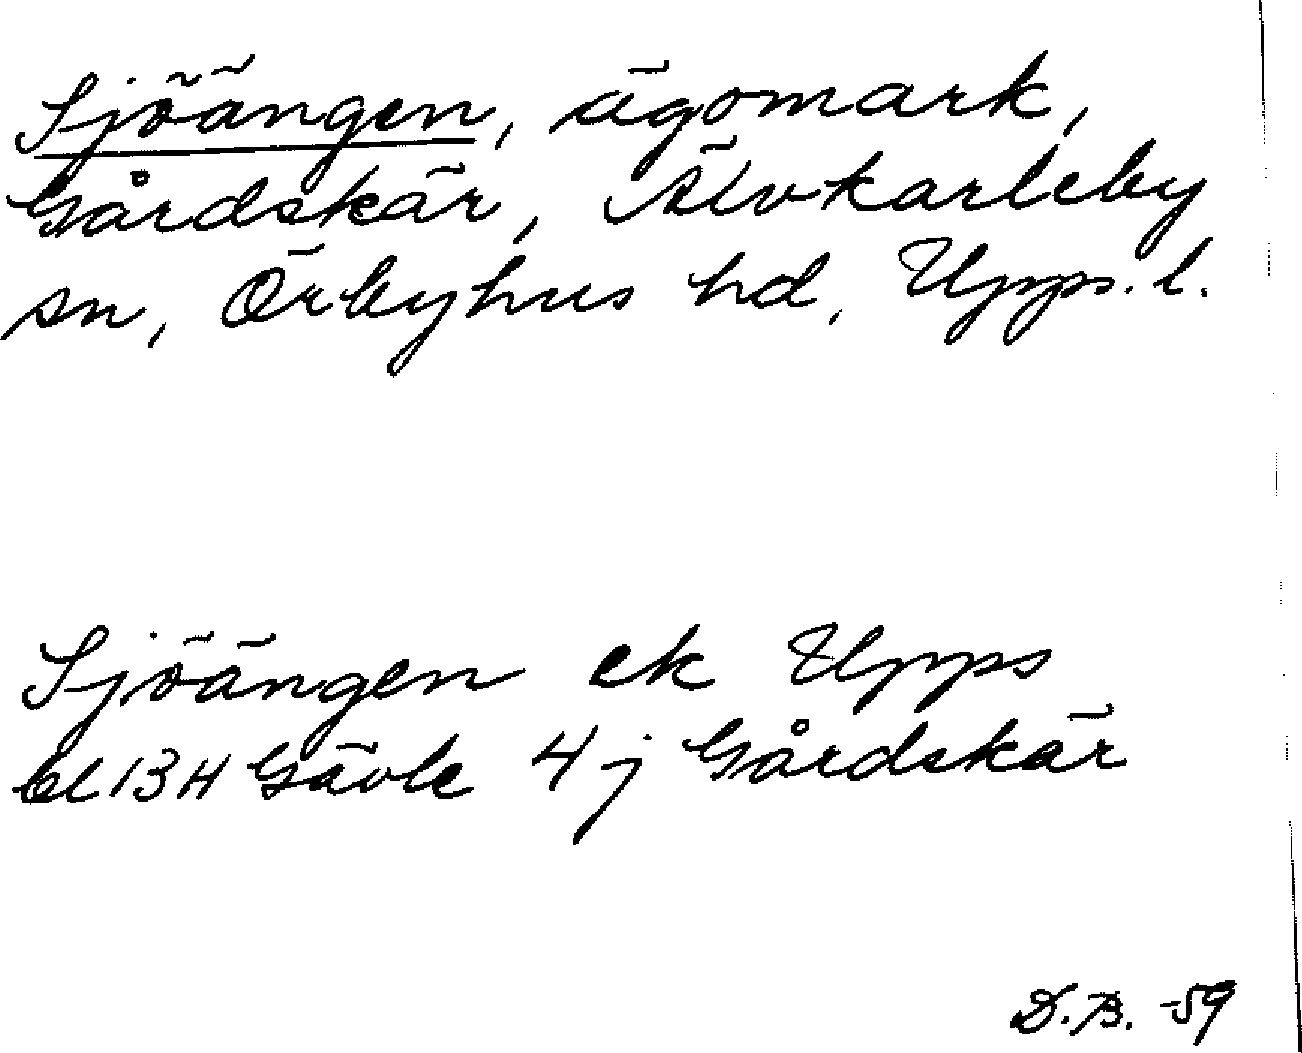 Sjöängen, ägomark,
Gårdskär, Älvkarleby
sn, Örbyhus hd, Upps. l.
Sjöängen ek Upps
bl 13H Gävle 4j Gårdskär
D.B. -59